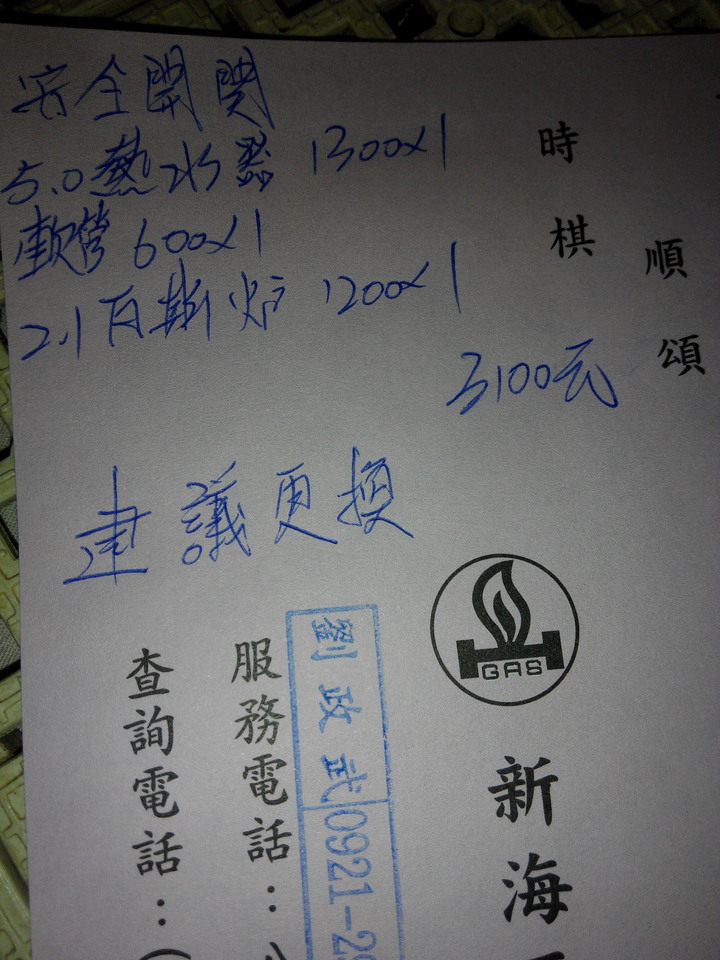 安全開関
5.0熱水器 1300x1
軟管 600x1
2.1瓦斯炉 1200x1
3100元
建議更換
順頌
時棋
GAS
新海
劉政武 0921-2
服務電話：(
查詢電話：(